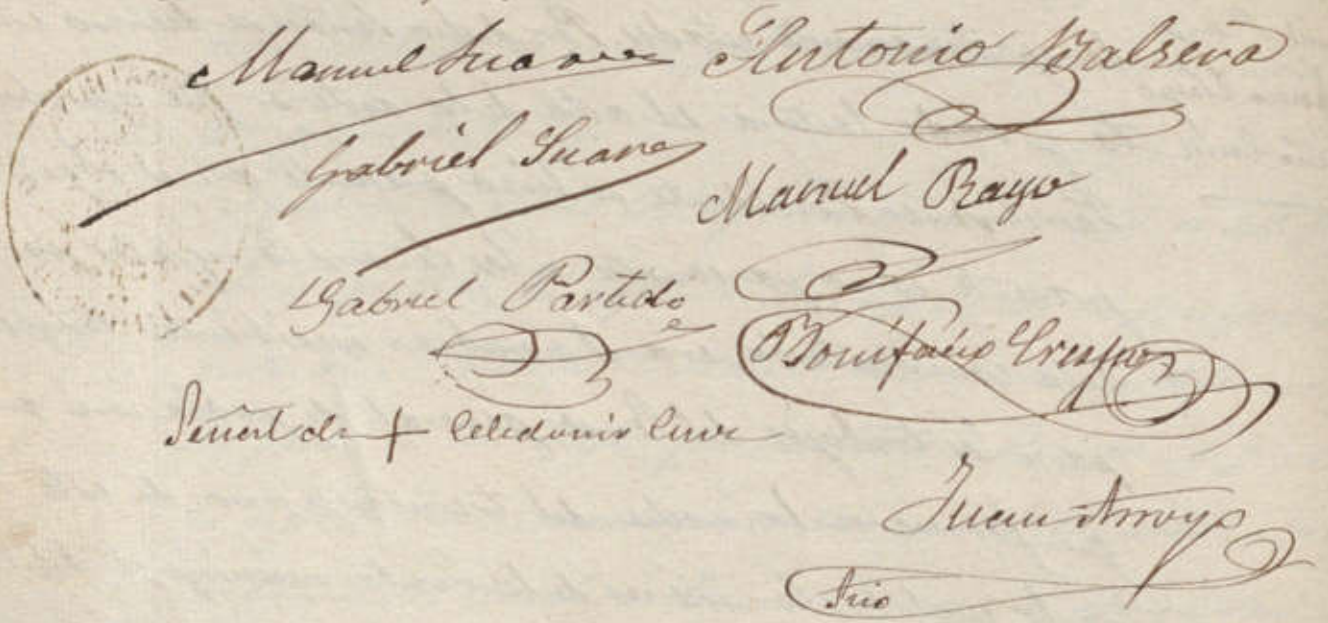 Manuel Suarez Antonio Balsera
Gabriel Suarez
Manuel Rayo
Gabriel Partido
Bonifacio Crespo
Señal de + Celedonio
Juan Arroyo
Srio